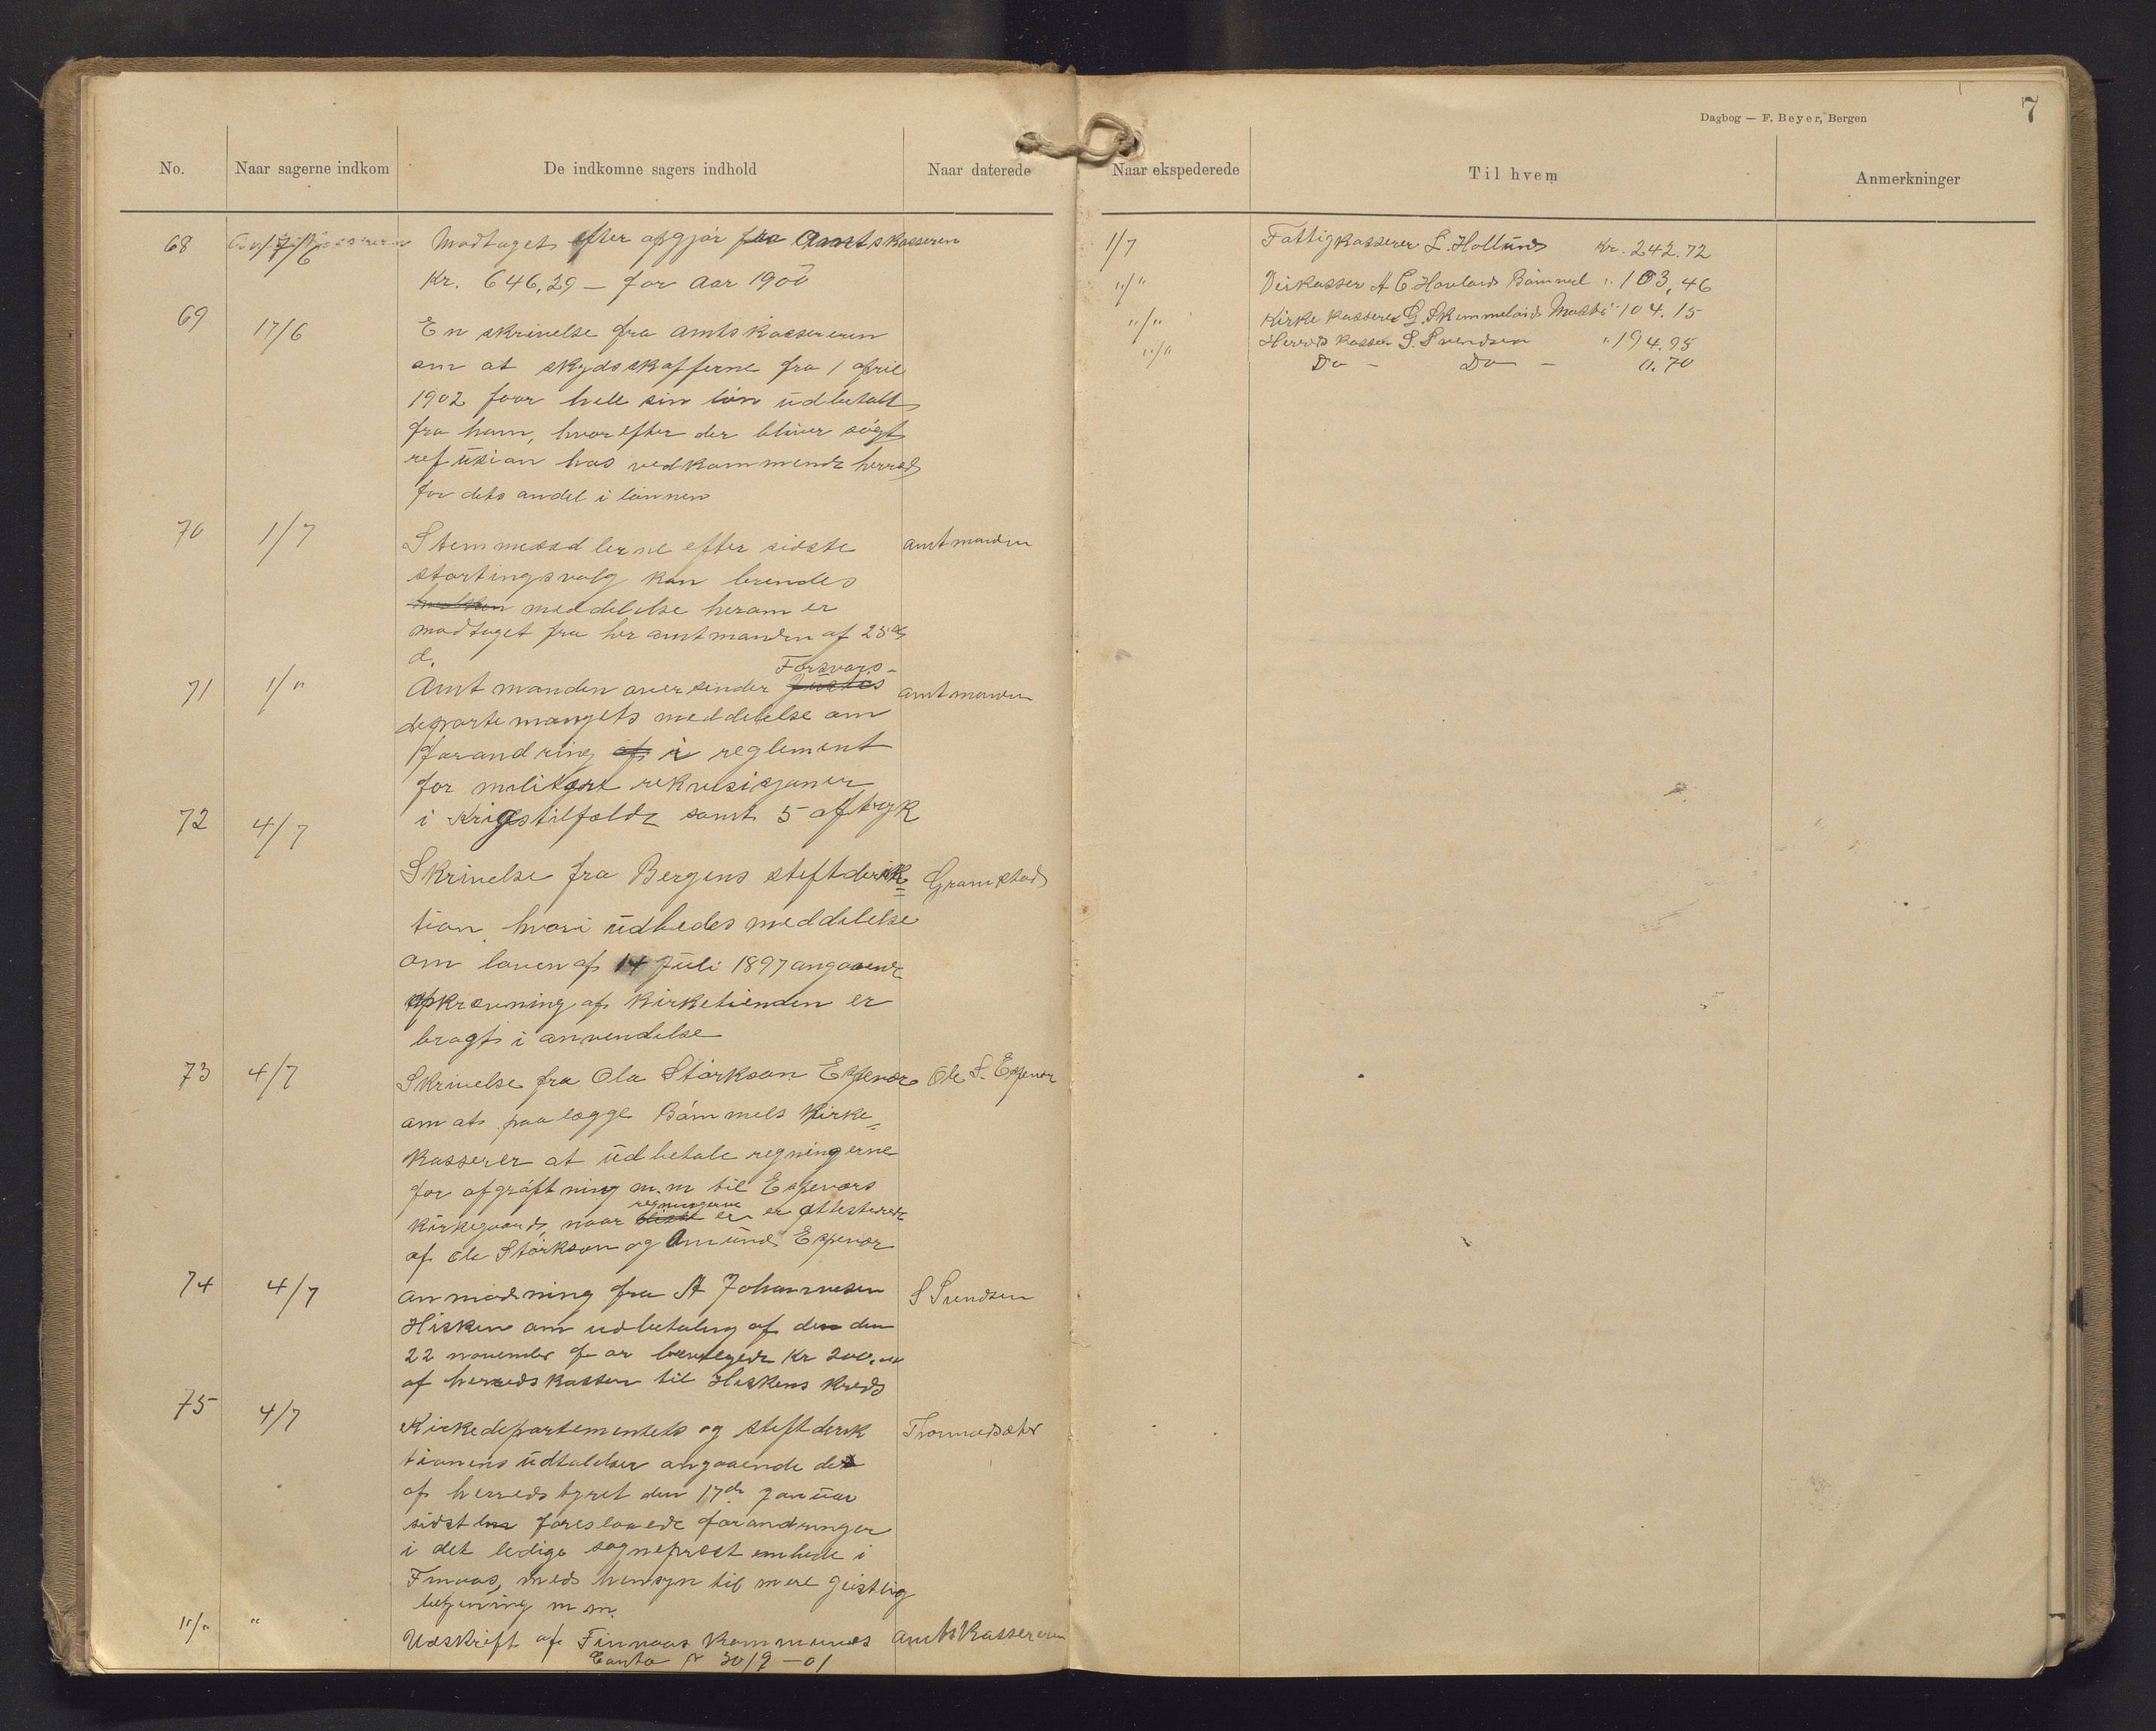 7
Dagbog — F. Beyer, Bergen
No. Naar sagerne indkom De indkomne sagers indhold Naar daterede Naar ekspederede Til hvem Anmerkninger
68 17/6 Modtaget efter opgjør fra Amtskasseren
Kr. 646,29 — for aar 1900
69 17/6 En skrivelse fra amtskassereren
om at skydsskafferne fra 1 april
1902 faar hele sin løn udbetalt
fra ham, hvorefter der bliver søgt
refusion hos vedkommende herred
for dets andel i lønnen
70 1/7 Stemmesedlerne efter sidste amtmanden
stortingsvalg kan brendes
meddelelse herom er
modtaget fra hr amtmanden af 25de
d.
Forsvars-
71 1/" Amtmanden oversender Justis amtmanden
departemangets meddelelse om
forandring af i reglement
for militært rekvisisjoner
i Krigstilfælde samt 5 aftryk
72 4/7
Skrivelse fra Bergens stiftderik= Gramstad
tion hvori udbedes meddelelse
om loven af 14 Juli 1897 angaaende
opkrævning af kirketienden er
bragt i anvendelse
73 4/7 Skrivelse fra Ola Størkson Espevær Ole S. Espevær
om at paalægge Bømmels Kirke=
kasserer at udbetale regningerne
for afgrøftning m.m til Espeværs
regningerne
kirkegaard, naar disse er er attesterede
af Ole Størkson og Amund Espevær
74 4/7 anmodning fra A Johannesen S Svendsen
Hisken om udbetaling af den den
22 november f ar bevilgede Kr 200.00
af herredskassen til Hiskens kreds
75 4/7
Kirkedepartementets og stiftderik
tionens udtalelser angaaende de
af herredstyret den 17de januar
sidstln foreslaaede forandringer
i det ledige sogneprest embede i
Finaas, med hensyn til mere geistlig
betjening m m.
"/" " Udskrift af Finnaas kommunes amtskassereren
Conto pr 30/9 — 01
1/7 Fattigkasserer L. Hollund Kr. 242.72
"/" Veikasser A C. Hovland Bømmel " 103,46
"/" Kirkekasserer G. Skimmeland " 104.15
"/" Herredskasser S. Svendsen " 194.95
Do — Do — 0.70